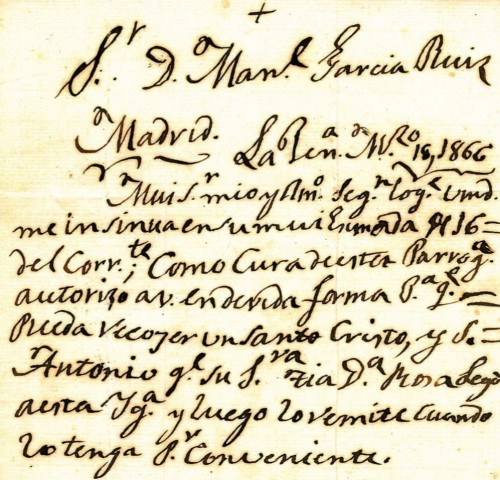 +
S.r D. Man.l Garcia Ruiz
Madrid. La Pen.a M.zo 18, 1866
Mui S.r mio y Am.o Seg.n lo q.e Vmd.
me insinua en su mui Enmada el 16=
del Corr.te; Como Cura de esta Parroq.a
autorizo a v. en devida forma P.a q.e =
Pueda recojer un Santo Cristo, y S.=
Antonio q.e su S.ra tia D.a Rosa Legó
a esta Yg.a y luego lo remite Cuando
lo tenga P.r Conveniente.